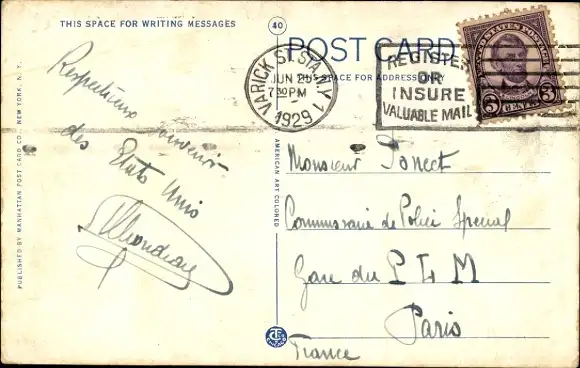 THIS SPACE FOR WRITING MESSAGES
40
POST CARD
THIS SPACE FOR ADDRESS ONLY
VARICK ST. STA. N.Y. 1
JUN 25
7 30 PM
1929
REGISTER
OR
INSURE
VALUABLE MAIL
UNITED STATES POSTAGE
LINCOLN
3 CENTS 3
Respectueux souvenir
des Etats Unis
Monsieur
Commissaire de Police Spécial
Gare du P L M
Paris
France
PUBLISHED BY MANHATTAN POST CARD CO., NEW YORK, N. Y.
AMERICAN ART COLORED